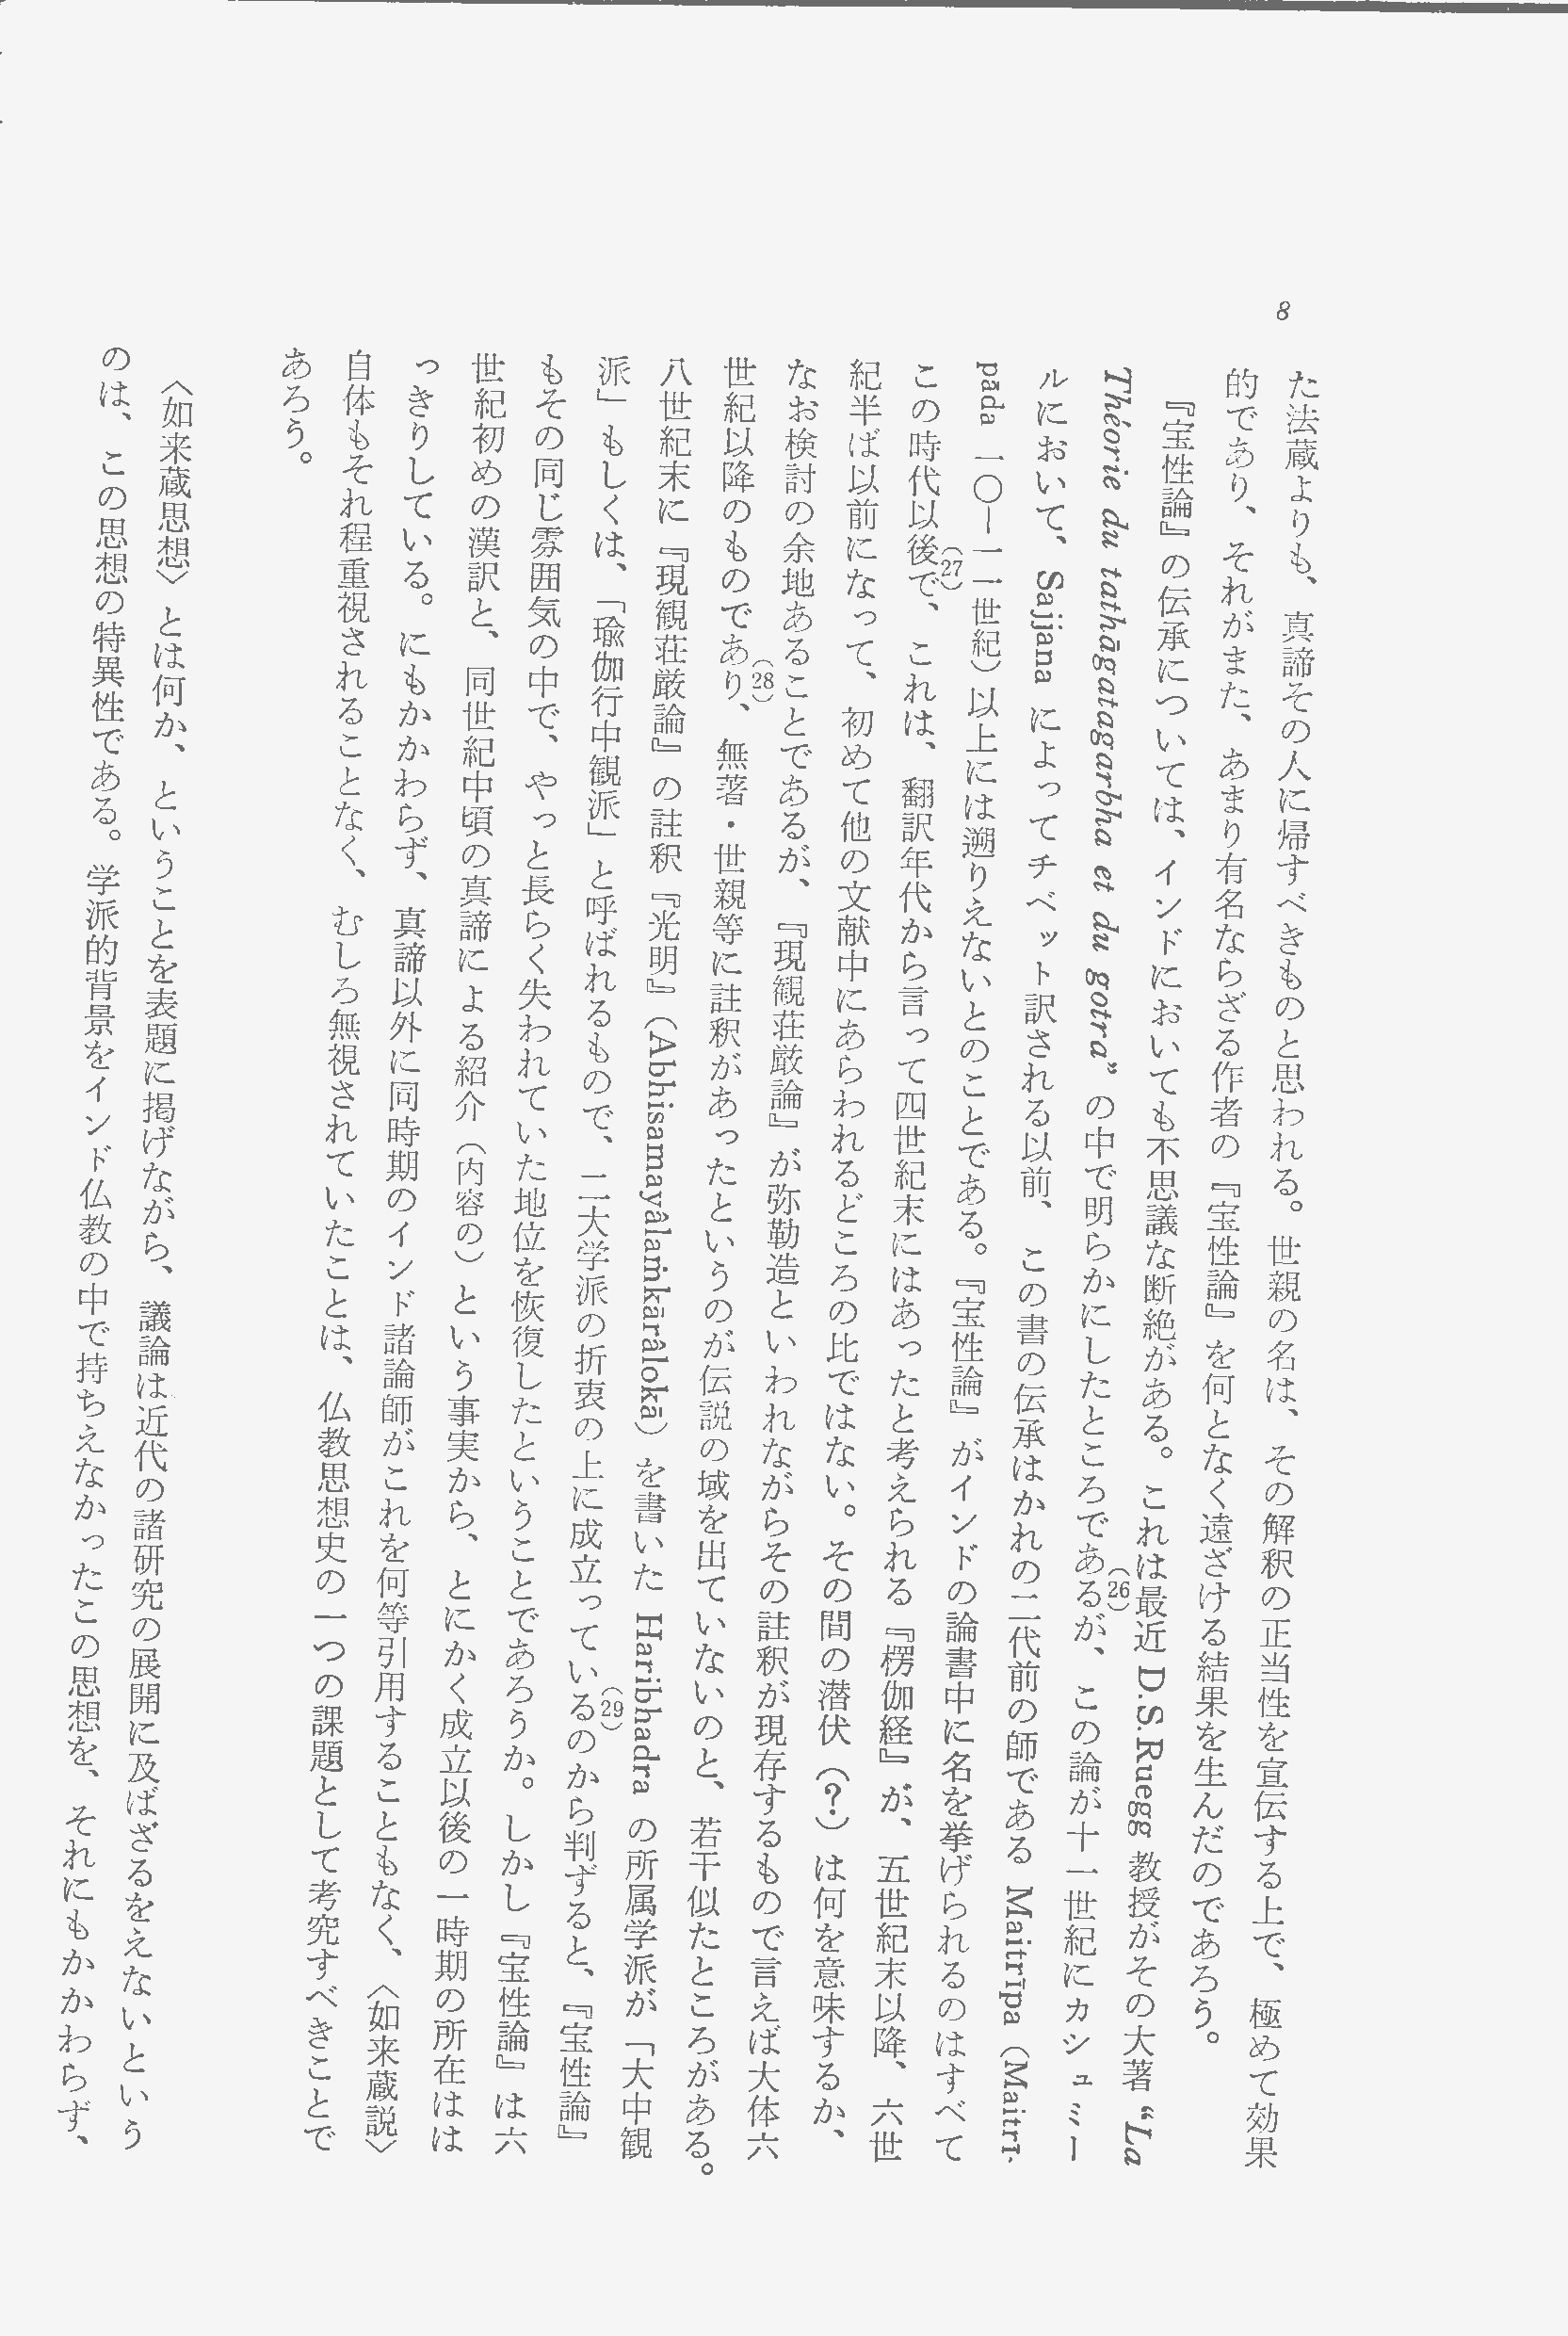 8
た法蔵よりも、真諦その人に帰すべきものと思われる。世親の名は、その解釈の正当性を宣伝する上で、極めて効果
的であり、それがまた、あまり有名ならざる作者の『宝性論』を何となく遠ざける結果を生んだのであろう。
『宝性論』の伝承については、インドにおいても不思議な断絶がある。これは最近 D.S.Ruegg 教授がその大著 “La
Théorie du tathāgatagarbha et du gotra” の中で明らかにしたところである(26)が、この論が十一世紀にカシュミー
ルにおいて、Sajjana によってチベット訳される以前、この書の伝承はかれの二代前の師である Maitrīpa (Maitrī-
pāda 一〇ー一一世紀) 以上には遡りえないとのことである。『宝性論』がインドの論書中に名を挙げられるのはすべて
この時代以後で(27)、これは、翻訳年代から言って四世紀末にはあったと考えられる『楞伽経』が、五世紀末以降、六世
紀半ば以前になって、初めて他の文献中にあらわれるどころの比ではない。その間の潜伏（？）は何を意味するか、
なお検討の余地あることであるが、『現観荘厳論』が弥勒造といわれながらその註釈が現存するもので言えば大体六
世紀以降のものであり(28)、無著・世親等に註釈があったというのが伝説の域を出ていないのと、若干似たところがある。
八世紀末に『現観荘厳論』の註釈『光明』(Abhisamayâlaṁkārâlokā) を書いた Haribhadra の所属学派が「大中観
派」もしくは、「瑜伽行中観派」と呼ばれるもので、二大学派の折衷の上に成立っている(29)のから判ずると、『宝性論』
もその同じ雰囲気の中で、やっと長らく失われていた地位を恢復したということであろうか。しかし『宝性論』は六
世紀初めの漢訳と、同世紀中頃の真諦による紹介（内容の）という事実から、とにかく成立以後の一時期の所在はは
っきりしている。にもかかわらず、真諦以外に同時期のインド諸論師がこれを何等引用することもなく、〈如来蔵説〉
自体もそれ程重視されることなく、むしろ無視されていたことは、仏教思想史の一つの課題として考究すべきことで
あろう。
〈如来蔵思想〉とは何か、ということを表題に掲げながら、議論は近代の諸研究の展開に及ばざるをえないという
のは、この思想の特異性である。学派的背景をインド仏教の中で持ちえなかったこの思想を、それにもかかわらず、